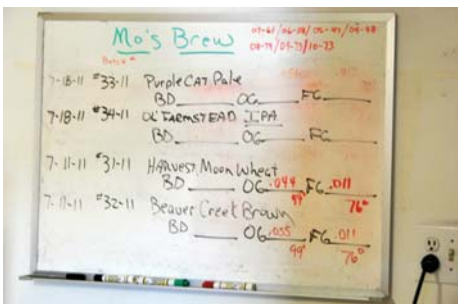 Mo's Brew
Batch #
7-18-11 #33-11 Purple CAT Pale
BD OG FG
7-18-11 #34-11 OL' FARMSTEAD IPA
BD OG FG
7-11-11 #31-11 HARVEST Moon Wheat
BD OG .044 FG .011
99° 76°
7-11-11 #32-11 Beaver Creek Brown
BD OG .055 FG .011
99° 76°